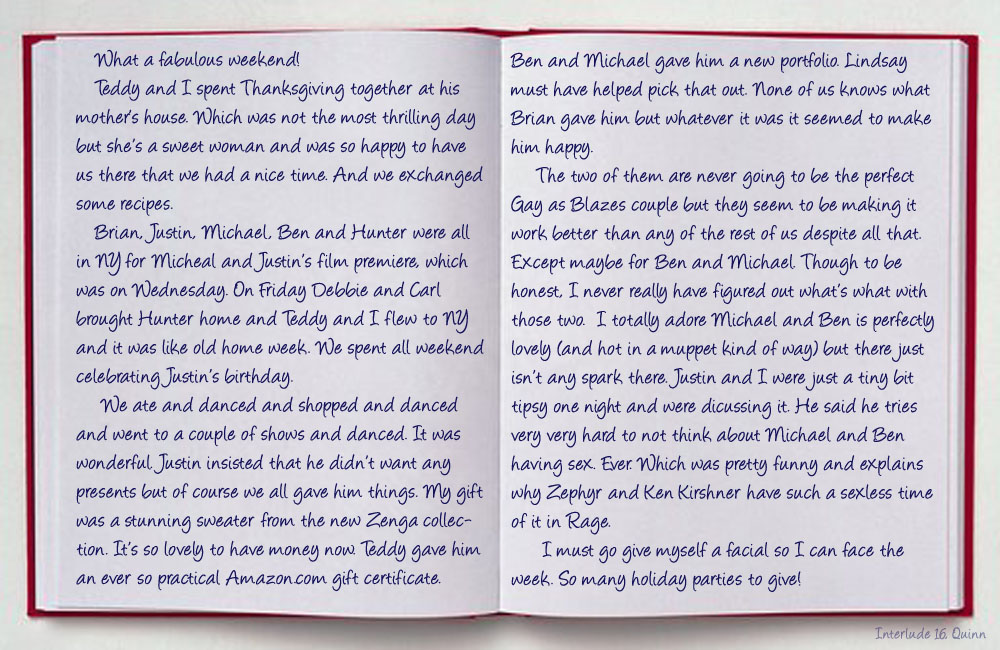 What a fabulous weekend!
Teddy and I spent Thanksgiving together at his
mother's house. Which was not the most thrilling day
but she's a sweet woman and was so happy to have
us there that we had a nice time. And we exchanged
some recipes.
Brian, Justin, Michael, Ben and Hunter were all
in NY for Micheal and Justin's film premiere, which
was on Wednesday. On Friday Debbie and Carl
brought Hunter home and Teddy and I flew to NY
and it was like old home week. We spent all weekend
celebrating Justin's birthday.
We ate and danced and shopped and danced
and went to a couple of shows and danced. It was
wonderful. Justin insisted that he didn't want any
presents but of course we all gave him things. My gift
was a stunning sweater from the new Zenga collec-
tion. It's so lovely to have money now. Teddy gave him
an ever so practical Amazon.com gift certificate.
Ben and Michael gave him a new portfolio. Lindsay
must have helped pick that out. None of us knows what
Brian gave him but whatever it was it seemed to make
him happy.
The two of them are never going to be the perfect
Gay as Blazes couple but they seem to be making it
work better than any of the rest of us despite all that.
Except maybe for Ben and Michael. Though to be
honest, I never really have figured out what's what with
those two. I totally adore Michael and Ben is perfectly
lovely (and hot in a muppet kind of way) but there just
isn't any spark there. Justin and I were just a tiny bit
tipsy one night and were dicussing it. He said he tries
very very hard to not think about Michael and Ben
having sex. Ever. Which was pretty funny and explains
why Zephyr and Ken Kirshner have such a sexless time
of it in Rage.
I must go give myself a facial so I can face the
week. So many holiday parties to give!
Interlude 16. Quinn